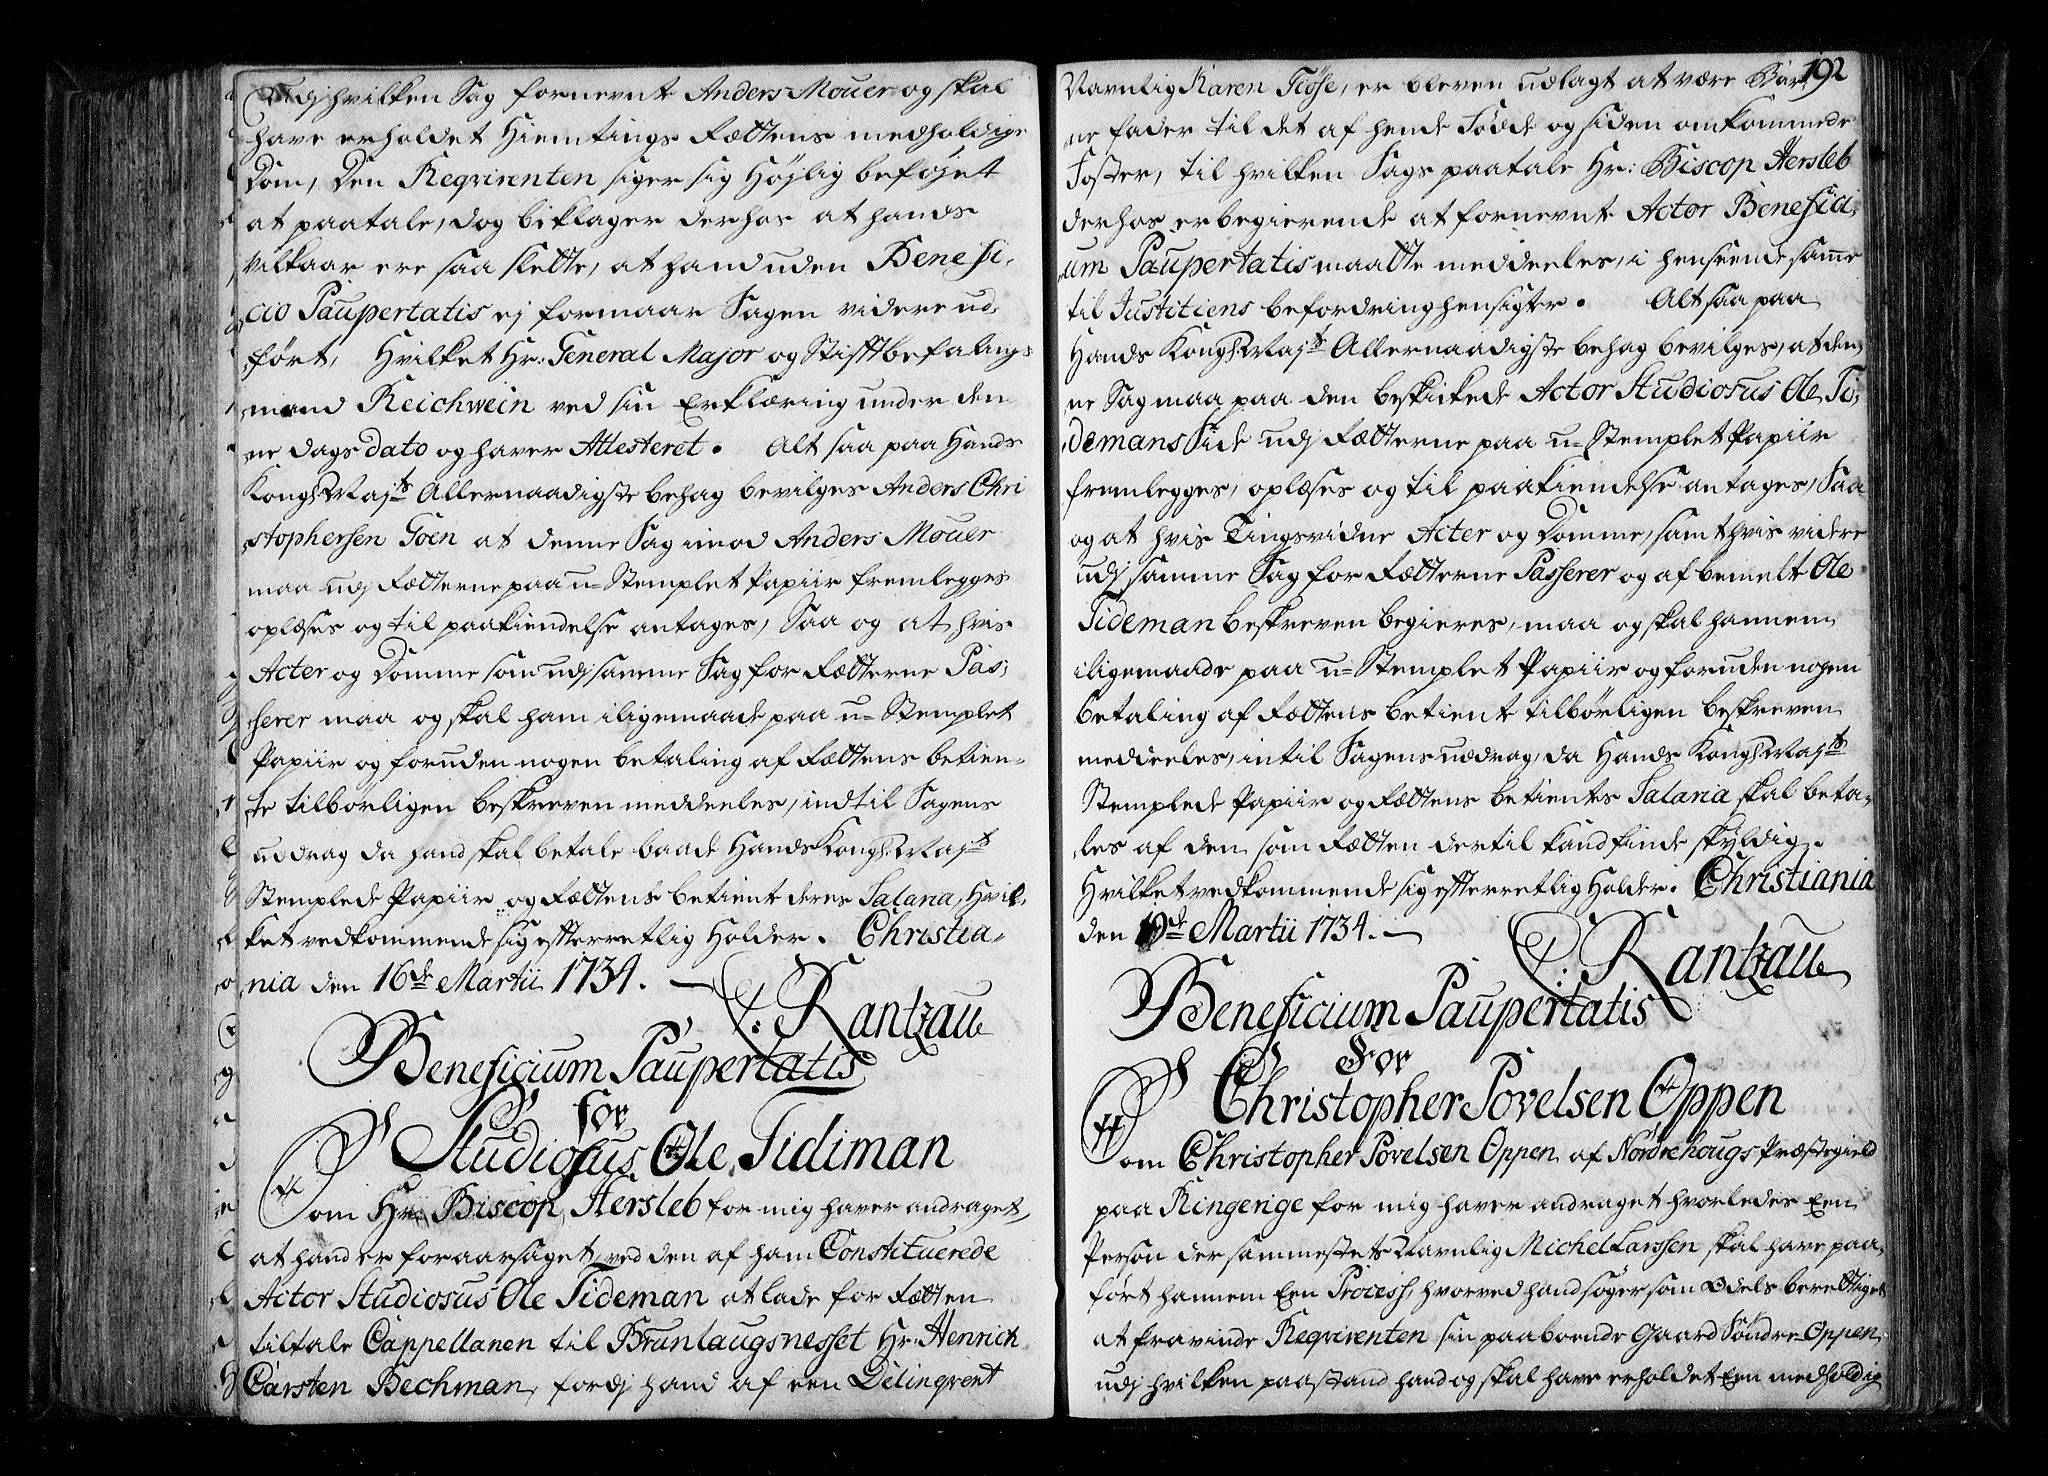 Udj hvilken Sag fornevnt Anders Mouer og skal
have erholdet Hiemtings Rættens medholdige
Dom, Den Reqvirenten siger sig Højlig beføjet
at paatale, dog beklager derhos at hands
Vilkaar ere saa slette, at hand uden Benefi„
cio Paupertatis ej formaar Sagen videre ud„
ført, Hvilket Hr: General Major og Stifftbefalings„
mand Reichwein ved sin Erklæring under den„
ne dags dato og haver Attesteret. Alt saa paa Hands
Kongl. Mayts Allernaadigste behag bevilges Anders Chri
„stophersen Goen at denne Sag imod Anders Mouer
maa udj Rætterne paa u=Stemplet Papiir fremlegges
oplæses og til paakiendelse antages, Saa og at hvis
Acter og Domme som udj samme Sag for Rætterne Pas„
serer maa og skal ham iligemaade paa u=Stemplet
Papiir og foruden nogen betaling af Rættens betien„
te tilbørligen beskreven meddeeles, indtil Sagens
uddrag da hand skal betale baade Hands Kongl. Mayts
Stemplede Papiir og Rættens betient deres Salaria, Hvil„
ket vedkommende sig efterretlig Holder. Christia„
nia den 16de Martii 1734.
C: Rantzau
Beneficium Paupertatis
for
Studiosus Ole Tidiman
Som Hr. Biscop Hersleb for mig haver andraget,
at hand er foraarsaget ved den af ham Constituerede
Actor Studiosus Ole Tideman at lade for Rætten
tiltale Cappellanen til Brunlaugsnesset Hr. Henrich
Carsten Bechman, fordj hand af een Delinqvent
192
Navnlig Karen Tiøse, er bleven udlagt at være Bar„
ne fader til det af hende Fødde og siden omkommede
Foster, til hvilken Sags paatale Hr: Biscop Hersleb
derhos er begierende at fornevnt Actor Benefici„
um Paupertatis maatte meddeeles, i henseende samme
til Justitiens befordring hensigter. Alt saa paa
Hands Kongl. Mayts Allernaadigste behag bevilges, at den„
ne Sag maa paa den beskickede Actor Studiosus Ole Ti„
demans Side udj Rætterne paa u=Stemplet Papiir
fremlegges, oplæses og til paakiendelse antages, Saa
og at hvis Tingsvidne Acter og Domme, samt hvis videre
udj samme Sag for Rætterne Passerer og af bemelt Ole
Tideman beskreven begieres, maa og skal hannem
iligemaade paa u=Stemplet Papiir og foruden nogen
betaling af Rættens betiente tilbørligen beskreven
meddeeles, intil Sagens uddrag, da Hands Kongl. Mayts
Stemplede Papiir og Rættens betientes Salaria skal beta„
les af den som Rætten dertil kand finde skyldig.
Hvilket vedkommende sig efterretlig Holder. Christiania
den 19de Martii 1734.
C: Rantzau
Beneficium Paupertatis
For
Christopher Povelsen Oppen
Som Christopher Povelsen Oppen af Nordrehougs Præstegield
paa Ringerige for mig haver andraget hvorledes Een
Person der sammestets Navnlig Michel Larssen skal have paa„
ført hannem Een Process, hvorved hand søger som Odels berettiget
at fravinde Reqvirenten sin paaboende Gaard Søndre=Oppen,
udj hvilken paastand hand og skal have erholdet Een medholdig